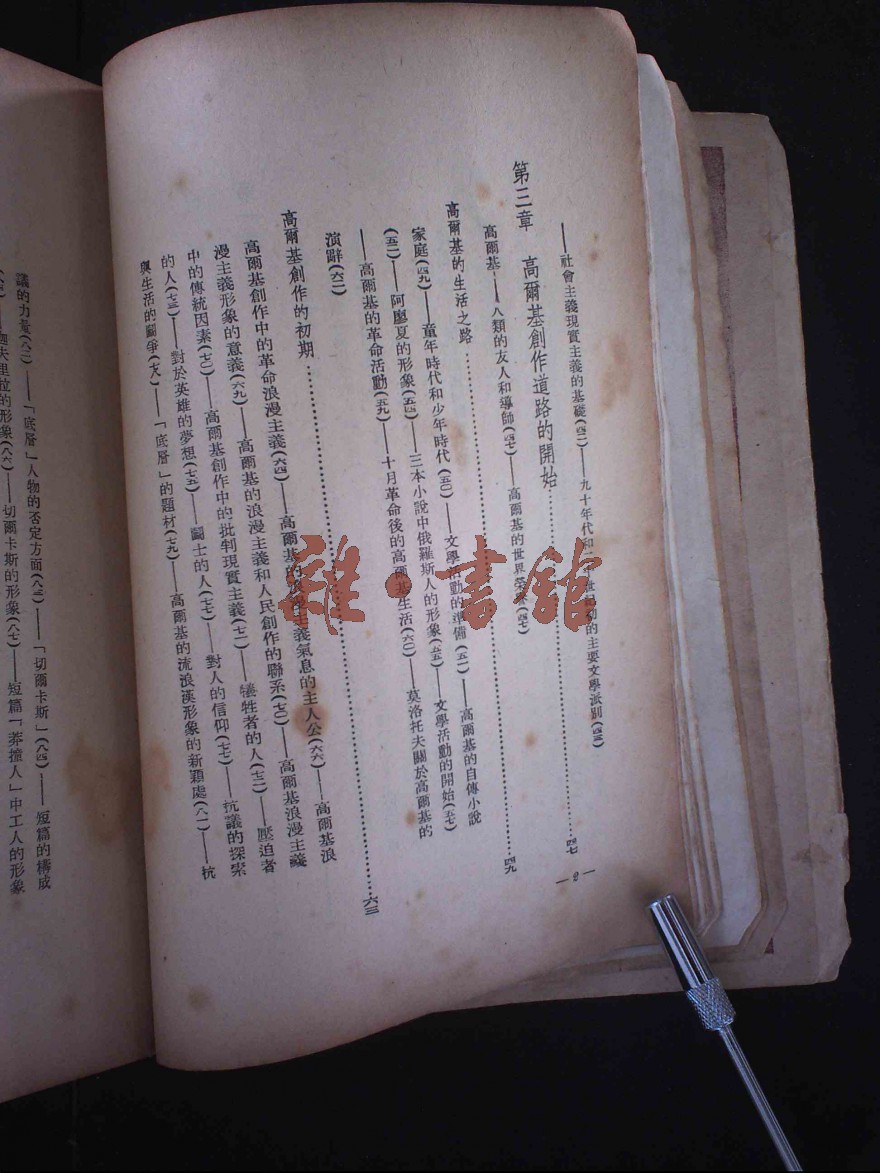 ——社會主義現實主義的基礎(四二)——九十年代和二十世紀初的主要文學派別(四三)
第三章 高爾基創作道路的開始……四七
高爾基——人類的友人和導師(四七)——高爾基的世界榮譽(四七)
高爾基的生活之路……四九
家庭(四九)——童年時代和少年時代(五〇)——文學活動的準備(五一)——高爾基的自傳小說
(五二)——阿廖夏的形象(五四)——三本小說中俄羅斯人的形象(五五)——文學活動的開始(五七)
——高爾基的革命活動(五九)——十月革命後的高爾基生活(六〇)——莫洛托夫關於高爾基的
演辭(六二)
高爾基創作的初期……六三
高爾基創作中的革命浪漫主義(六四)——高爾基的浪漫主義氣息的主人公(六六)——高爾基浪
漫主義形象的意義(六九)——高爾基的浪漫主義和人民創作的聯系(七〇)——高爾基浪漫主義
中的傳統因素(七〇)——高爾基創作中的批判現實主義(七二)——犧牲者的人(七二)——壓迫者
的人(七三)——對於英雄的夢想(七五)——鬭士的人(七七)——對人的信仰(七七)——抗議的探索
與生活的鬭爭(七八)——「底層」的題材(七九)——高爾基的流浪漢形象的新穎處(八一)——抗
— 9 —
議的力量(八二)——「底層」人物的否定方面(八三)——「切爾卡斯」(八四)——短篇的構成
迦夫里拉的形象(八六)——切爾卡斯的形象(八七)——短篇「莽撞人」中工人的形象
雜·書館